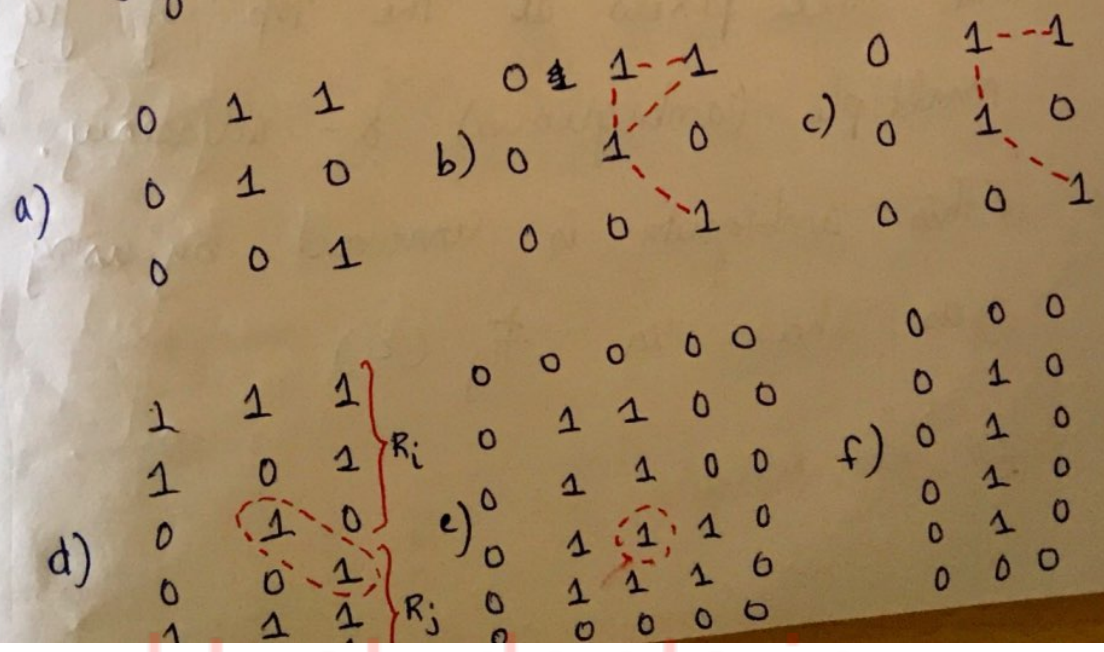 a)
0 1 1
0 1 0
0 0 1
b)
0 1 1
0 1 0
0 0 1
c)
0 1 1
0 1 0
0 0 1
d)
1 1 1
1 0 1
0 1 0
0 0 1
1 1 1
Ri
Rj
e)
0 0 0 0 0
0 1 1 0 0
0 1 1 0 0
0 1 1 1 0
0 1 1 1 0
0 0 0 0 0
f)
0 0 0
0 1 0
0 1 0
0 1 0
0 1 0
0 0 0